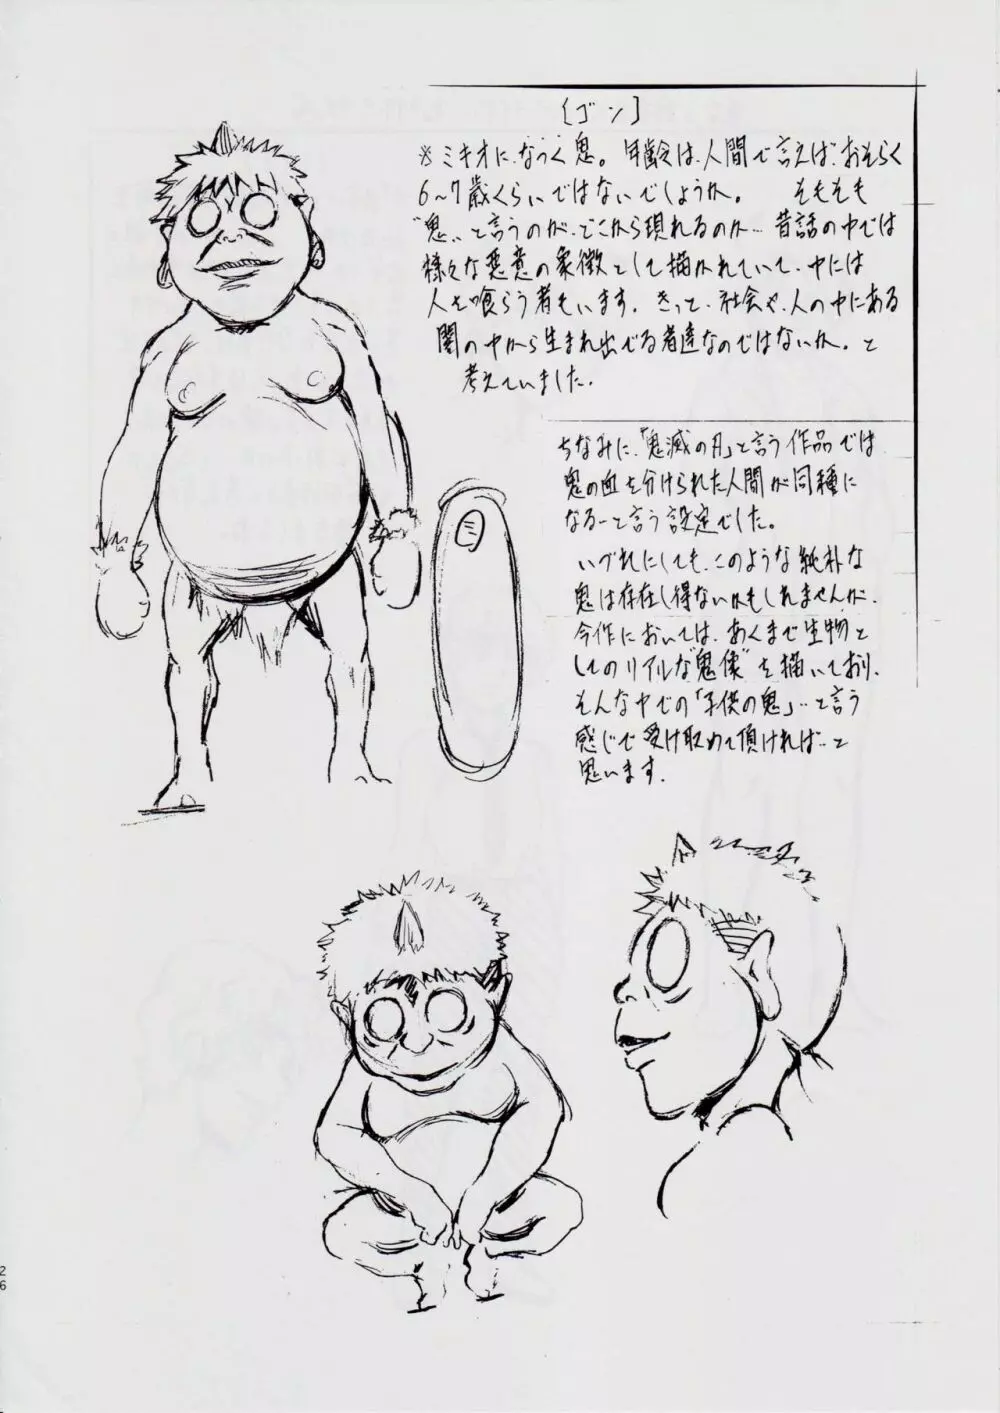 [ゴン]
※ミキオに、なつく鬼。年齢は、人間で言えば、おそらく
6〜7歳くらいではないでしょうか。 そもそも
"鬼"と言うのが、どこから現れるのか… 昔話の中では
様々な悪意の象徴として描かれていて、中には
人を喰らう者もいます。きっと、社会や、人の中にある
闇の中から生まれ出でる者達なのではないか。と
考えていました。
ちなみに、「鬼滅の刃」と言う作品では
鬼の血を分けられた人間が同種に
なる…と言う設定でした。
いづれにしても、このような純朴な
鬼は存在し得ないかもしれませんが、
今作においては、あくまで生物と
してのリアルな"鬼像"を描いており、
そんな中での「子供の鬼」…と言う
感じで受け取めて頂ければ…と
思います。
ミ
26